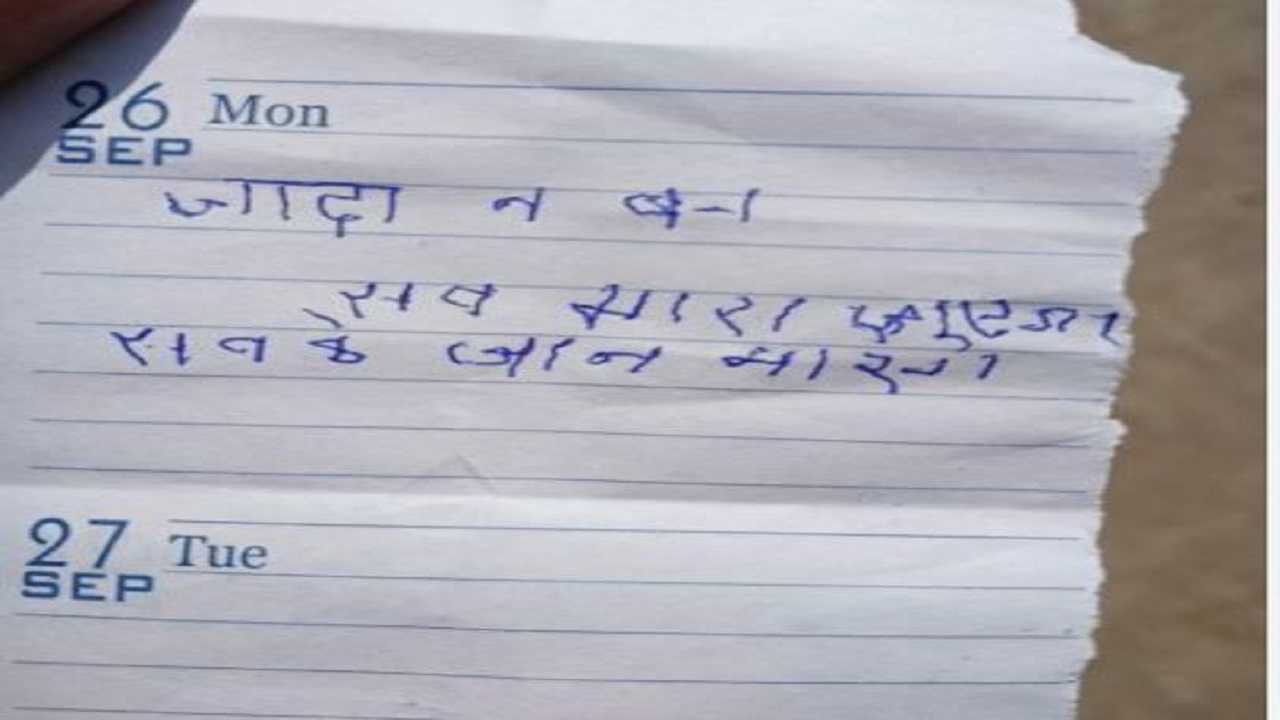 26 Mon
SEP
जादा न बन
सब मारा
सब के जान मारब
27 Tue
SEP